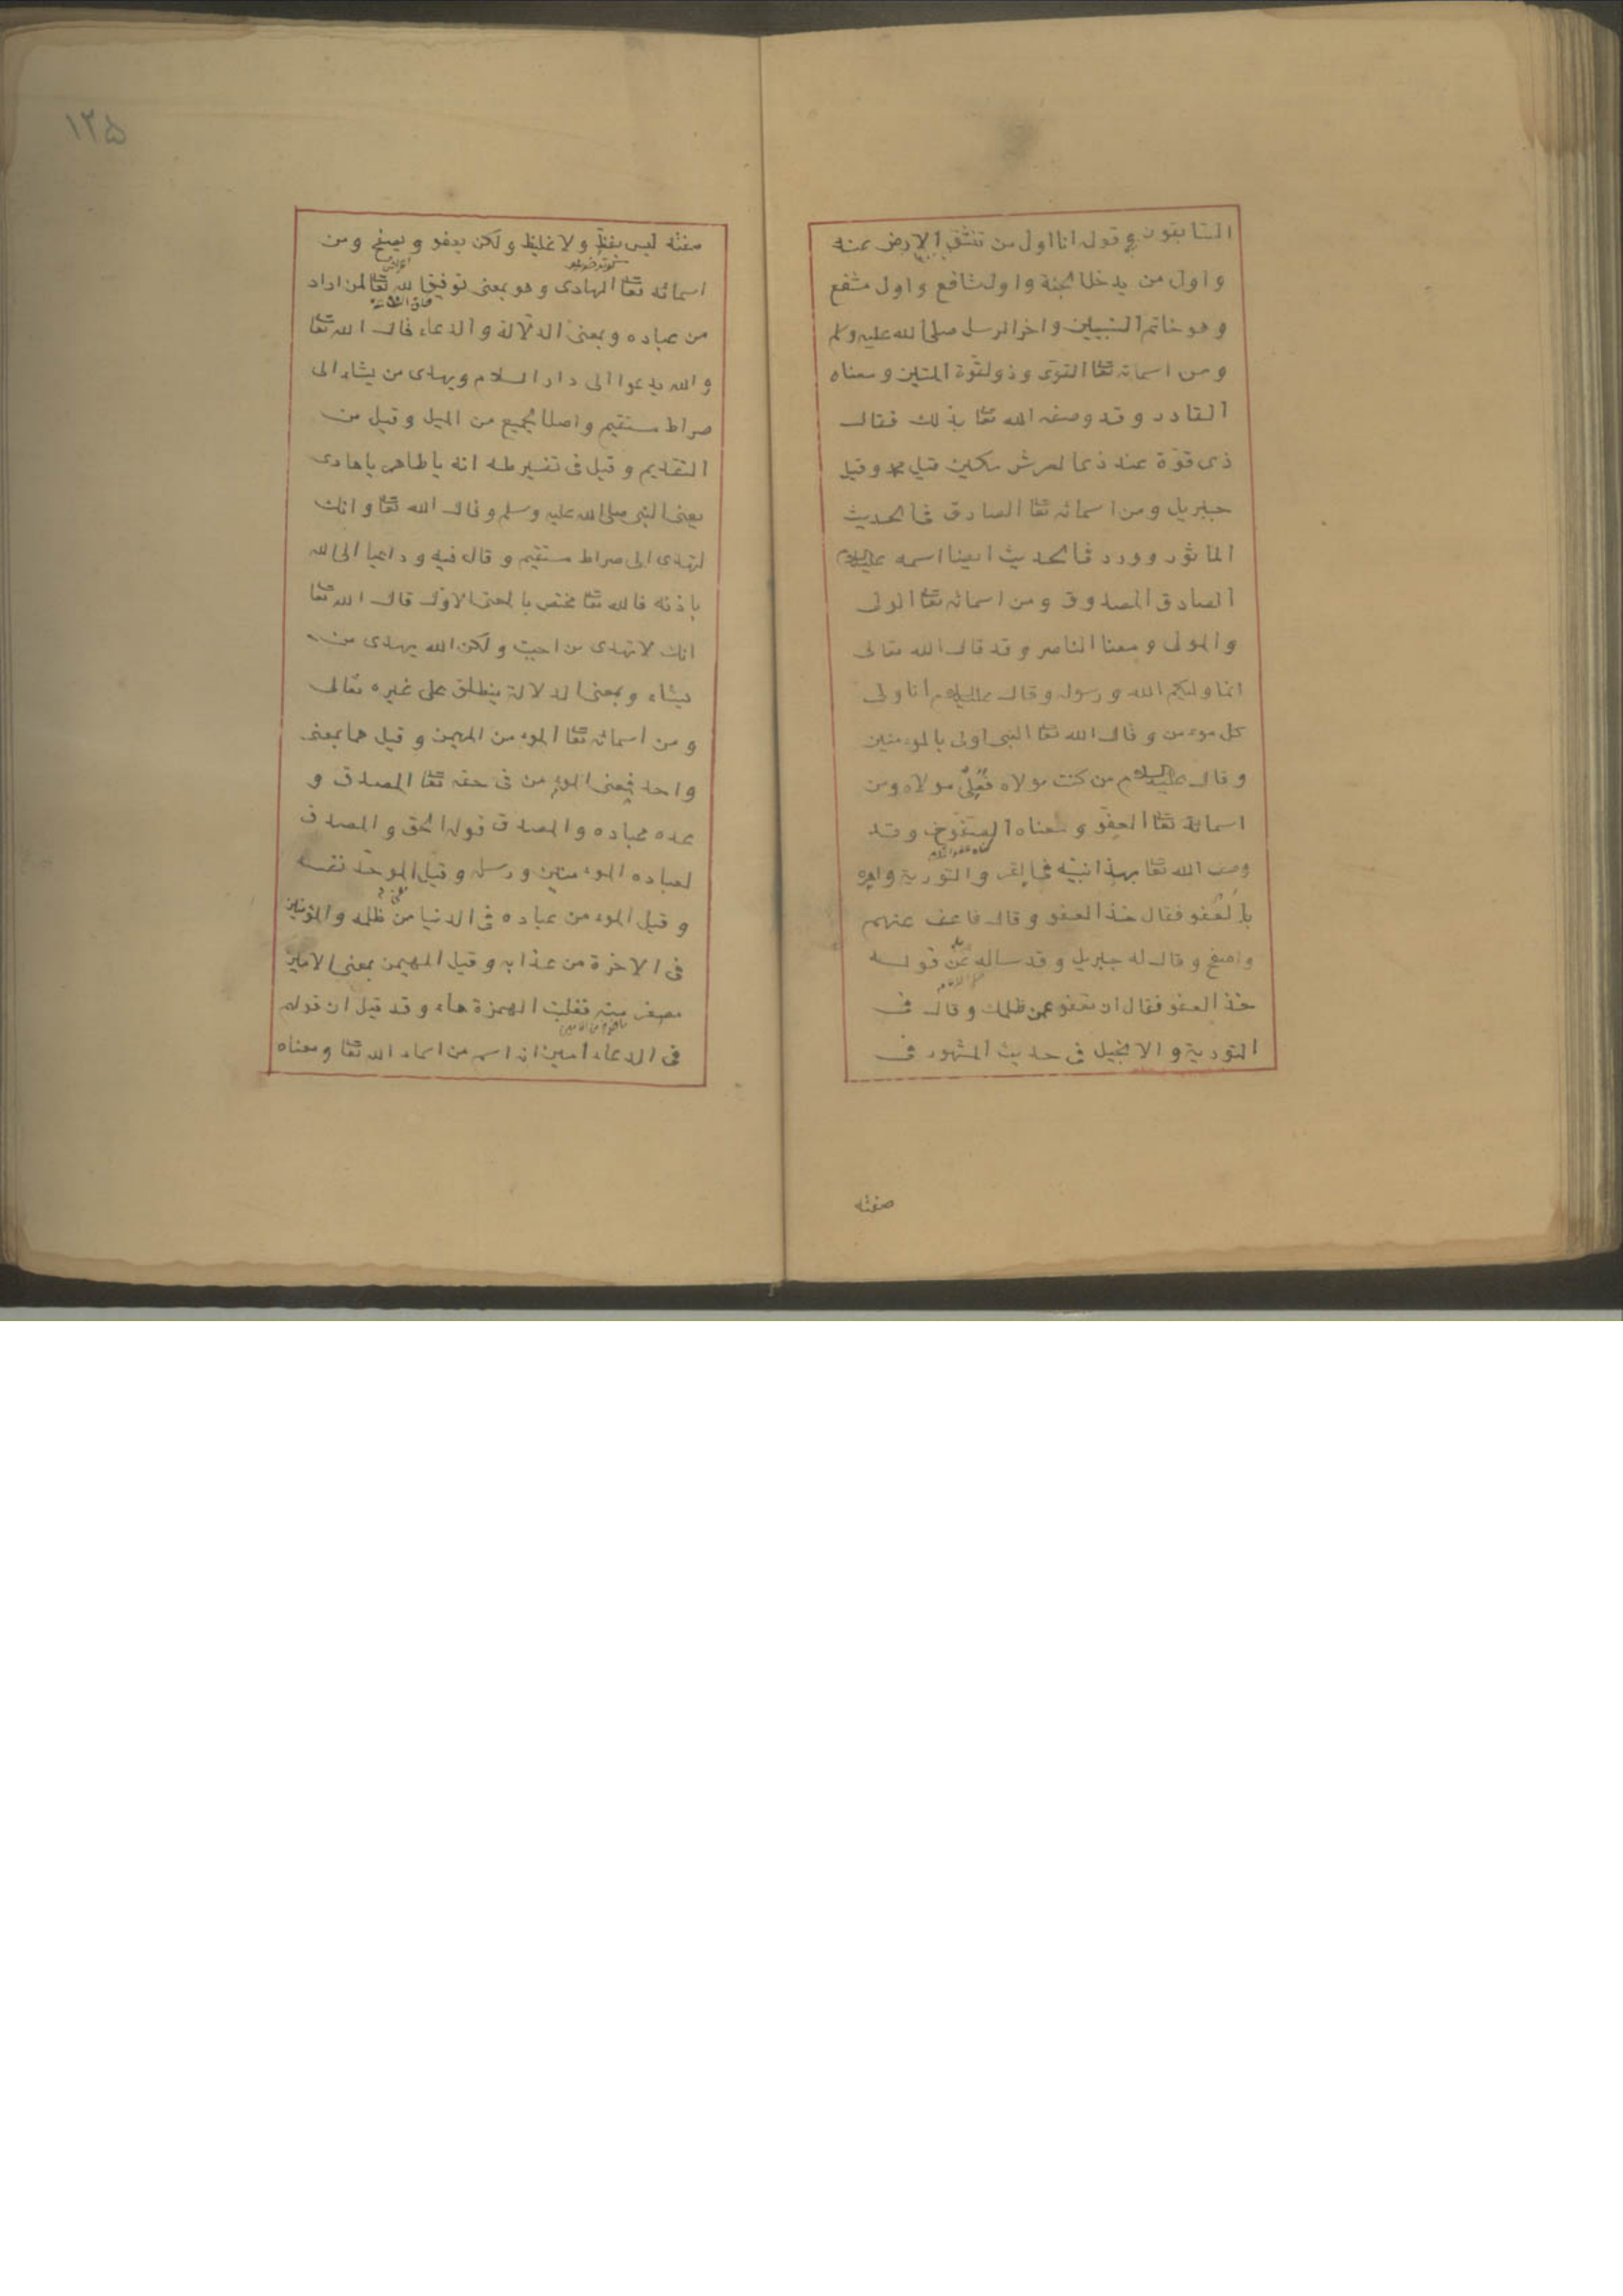 السابقون وقوله انا اول من تنشق الارض عنه
واول من يدخل الجنة واول شافع واول مشفع
وهو خاتم النبيين واخر الرسل صلى الله عليه وسلم
ومن اسمائه تعا القوى وذو القوة المتين ومعناه
القادر وقد وصفه الله تعا بذلك فقال
ذى قوة عند ذى العرش مكين قيل محمد وقيل
جبريل ومن اسمائه تعا الصادق فى الحديث
الماثور وورد فى الحديث ايضا اسمه عليه السلام
الصادق المصدوق ومن اسمائه تعا الولى
والمولى ومعنا الناصر وقد قال الله تعالى
انما وليكم الله ورسوله وقال عليه السلام انا ولى
كل موءمن وقال الله تعا النبى اولى بالموءمنين
وقال عليه السلام من كنت مولاه فعلى مولاه ومن
اسمائه تعا العفو ومعناه الصفوح وقد
وصف الله تعا بهذا نبيه فى القر والتورية وامره
بالعفو فقال خذ العفو وقال فاعف عنهم
واصفح وقال له جبريل وقد ساله عن قوله
خذ العفو فقال ان تعفو عمن ظلمك وقال فى
التورية والانجيل فى حديث المشهور فى
صفته
١٢٥
صفته ليس بفظ ولا غليظ ولكن يعفو ويصفح ومن
اسمائه تعا الهادى وهو بمعنى توفيق الله تعا لمن اراد
من عباده وبمعنى الدلالة والدعاء قال الله تعا
والله يدعوا الى دار السلام ويهدى من يشاء الى
صراط مستقيم واصل الجميع من الميل وقيل من
التقديم وقيل فى تفسير طه انه يا طاهر يا هادى
يعنى النبى صلى الله عليه وسلم وقال الله تعا وانك
لتهدى الى صراط مستقيم وقال فيه وداعيا الى الله
باذنه فالله تعا مختص بالمعنى الاول قال الله تعا
انك لا تهدى من احببت ولكن الله يهدى من
يشاء وبمعنى الدلالة ينطلق على غيره تعالى
ومن اسمائه تعا الموءمن المهيمن وقيل هما بمعنى
واحد فمعنى الموءمن فى حقه تعا المصدق و
عده عباده والمصدق قوله الحق والمصدق
لعباده الموءمنين ورسله وقيل الموحد نفسه
وقيل الموءمن عباده فى الدنيا من ظلمه والموءمنين
فى الاخرة من عذابه وقيل المهيمن بمعنى الامين
مصغر منه فقلبت الهمزة هاء وقد قيل ان قولهم
فى الدعاء امين انه اسم من اسماء الله تعا ومعناه